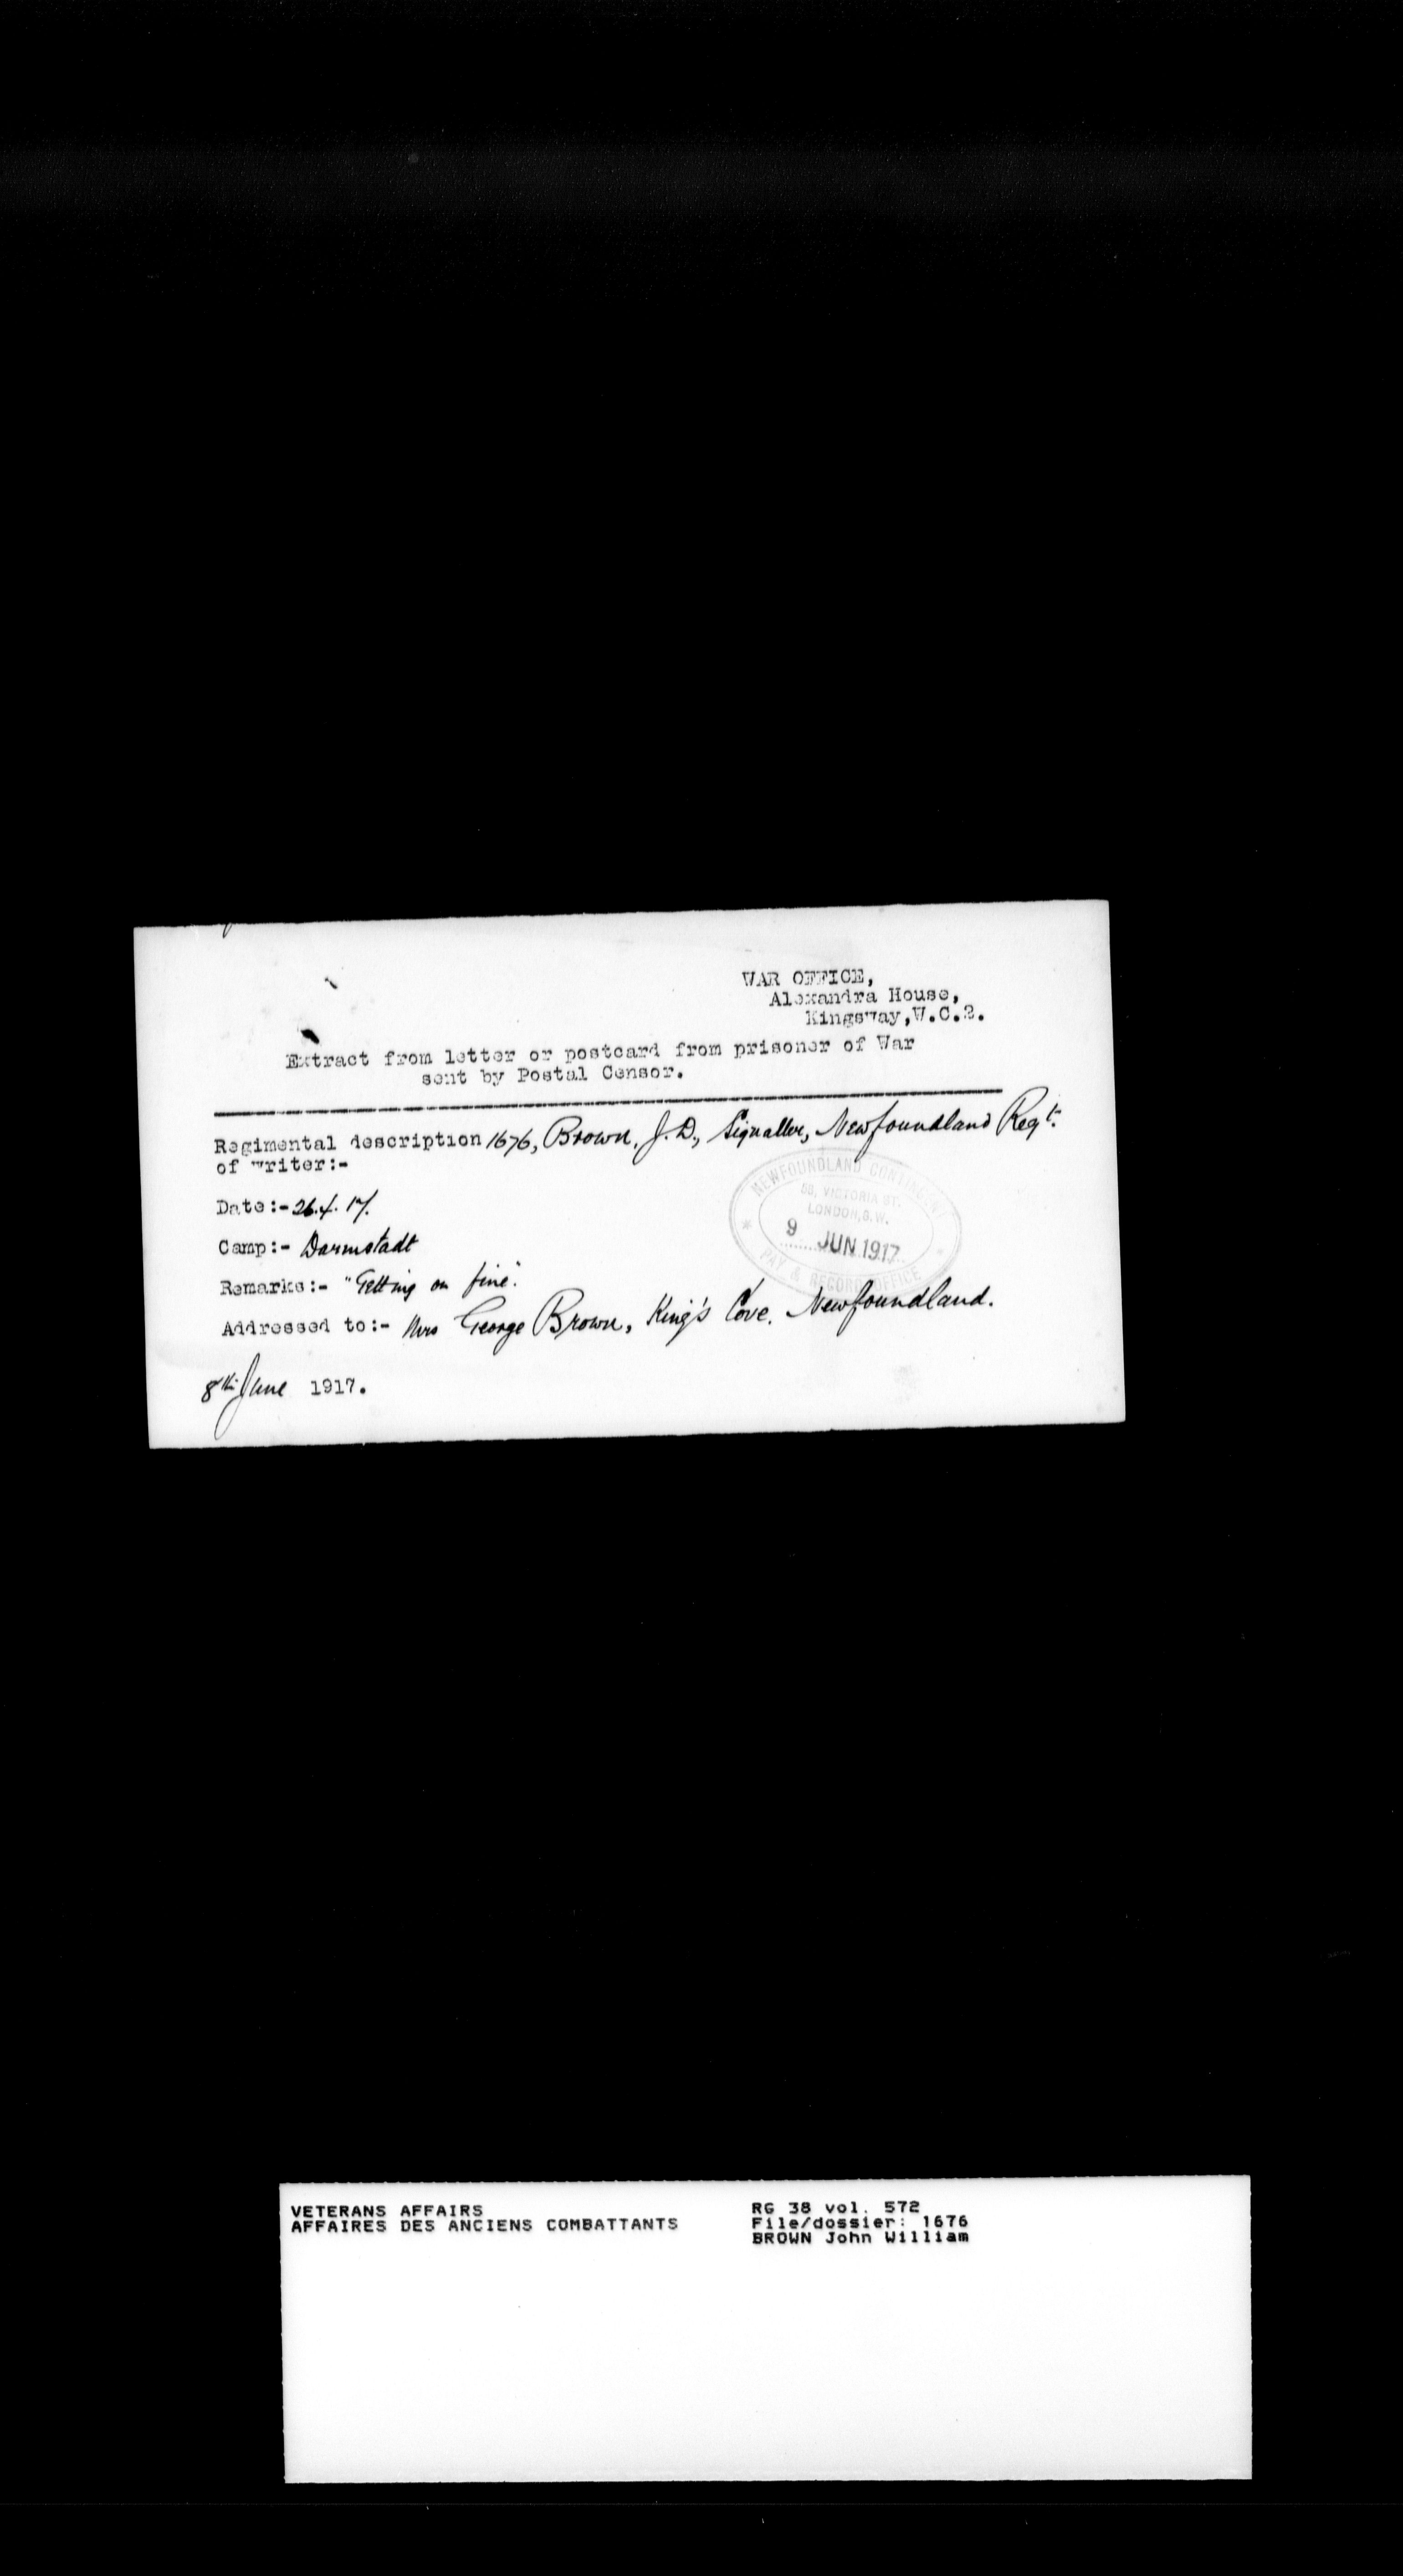 WAR OFFICE,
Alexandra House,
Kingsway, W.C.2.
Extract from letter or postcard from prisoner of War
sent by Postal Censor.
Regimental description 1676, Brown, J. D., Signaller, Newfoundland Regt.
of writer:-
Date:- 26.4.17.
Camp:- Darmstadt
Remarks:- "Getting on fine".
Addressed to:- Mrs George Brown, King's Cove, Newfoundland.
8th June 1917.
NEWFOUNDLAND CONTINGENT
58, VICTORIA ST.
LONDON, S.W.
9 JUN 1917
PAY & RECORD OFFICE
VETERANS AFFAIRS
AFFAIRES DES ANCIENS COMBATTANTS
RG 38 vol. 572
File/dossier: 1676
BROWN John William